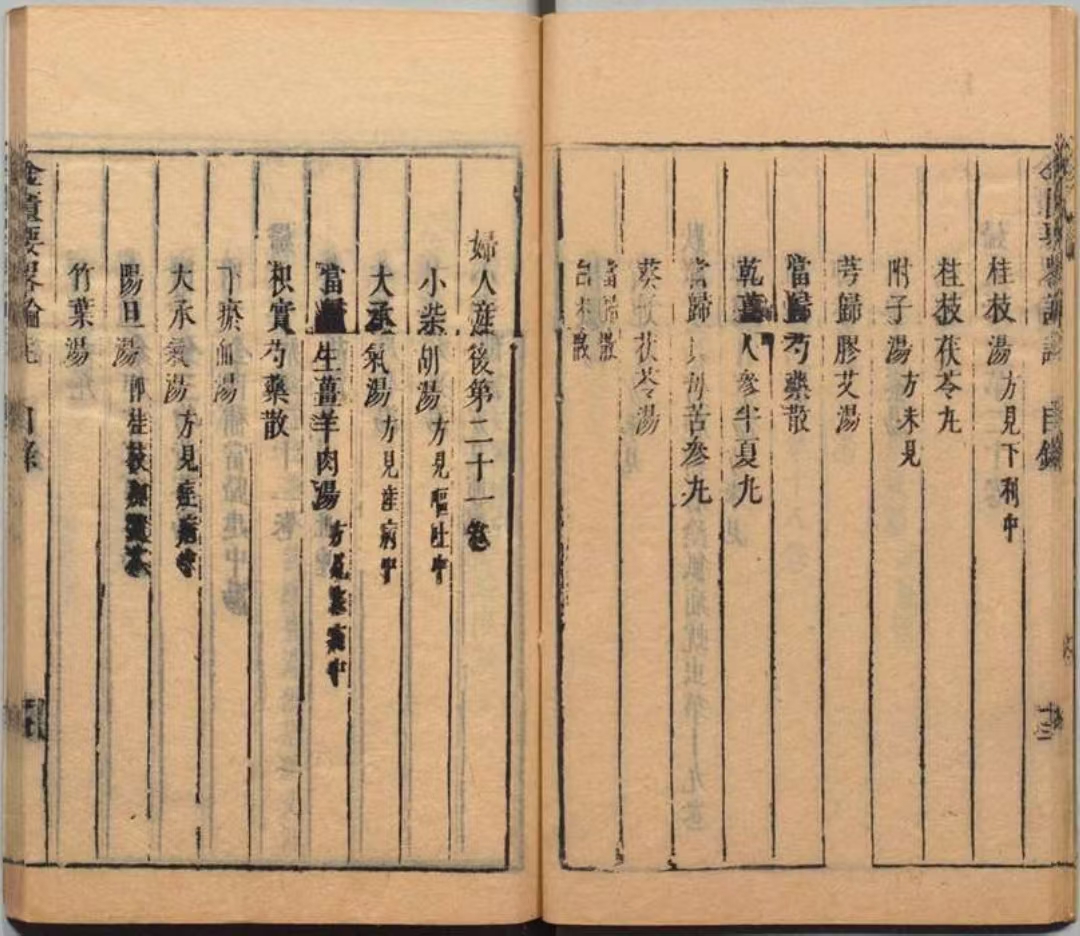 桂枝湯方見下利中
桂枝茯苓丸
附子湯方未見
芎歸膠艾湯
當歸芍藥散
乾薑人參半夏丸
當歸貝母苦參丸
葵子茯苓湯
當歸散
白朮散
婦人產後第二十一卷
小柴胡湯方見嘔吐中
大承氣湯方見痓病中
當歸生薑羊肉湯方見寒疝中
枳實芍藥散
下瘀血湯
大承氣湯方見痓病中
陽旦湯即桂枝
竹葉湯
金匱要畧論 目錄